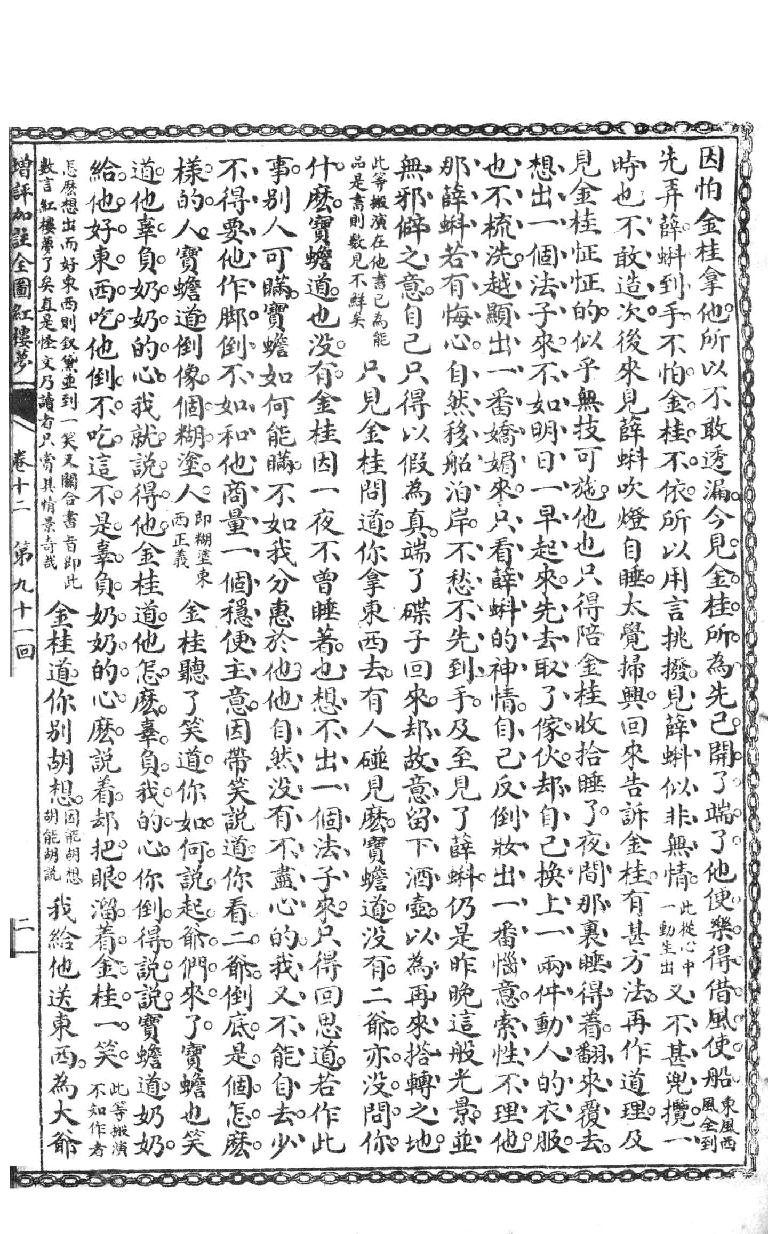 因怕金桂拿他所以不敢透漏今見金桂所為先已開了端了他便樂得借風使船東風西風全到
先弄薛蝌到手不怕金桂不依所以用言挑撥見薛蝌似非無情此從心中一動生出又不甚兜攬一
時也不敢造次後來見薛蝌吹燈自睡太覺掃興回來告訴金桂有甚方法再作道理及
見金桂怔怔的似乎無技可施他也只得陪金桂收拾睡了夜間那裏睡得着翻來覆去
想出一個法子來不如明日一早起來先去取了傢伙却自己换上一兩件動人的衣服
也不梳洗越顯出一番嬌媚來只看薛蝌的神情自己反倒妝出一番惱意索性不理他
那薛蝌若有悔心自然移船泊岸不愁不先到手及至見了薛蝌仍是昨晚這般光景並
無邪僻之意自己只得以假為真端了碟子回來却故意留下酒壺以為再來搭轉之地
此等搬演在他書已為能品是書則數見不鮮矣只見金桂問道你拿東西去有人碰見麽寶蟾道没有二爺亦没問你
什麽寶蟾道也没有金桂因一夜不曾睡著也想不出一個法子來只得回思道若作此
事别人可瞞寶蟾如何能瞞不如我分惠於他他自然没有不盡心的我又不能自去少
不得要他作脚倒不如和他商量一個穩便主意因帶笑説道你看二爺倒底是個怎麽
様的人寶蟾道倒像個糊塗人即糊塗東西正義金桂聽了笑道你如何説起爺們來了寶蟾也笑
道他辜負奶奶的心我就説得他金桂道他怎麽辜負我的心你倒得説説寶蟾道奶奶
給他好東西吃他倒不吃這不是辜負奶奶的心麽説着却把眼溜着金桂一笑此等搬演不知作者
怎麽想出而好東西則釵黛並到一笑又關合書旨即此數言紅樓夢了矣真是怪文乃讀者只賞其情景奇哉金桂道你别胡想因能胡想胡能胡説我給他送東西為大爺
增評加註全圖紅樓夢 卷十二 第九十一回 二